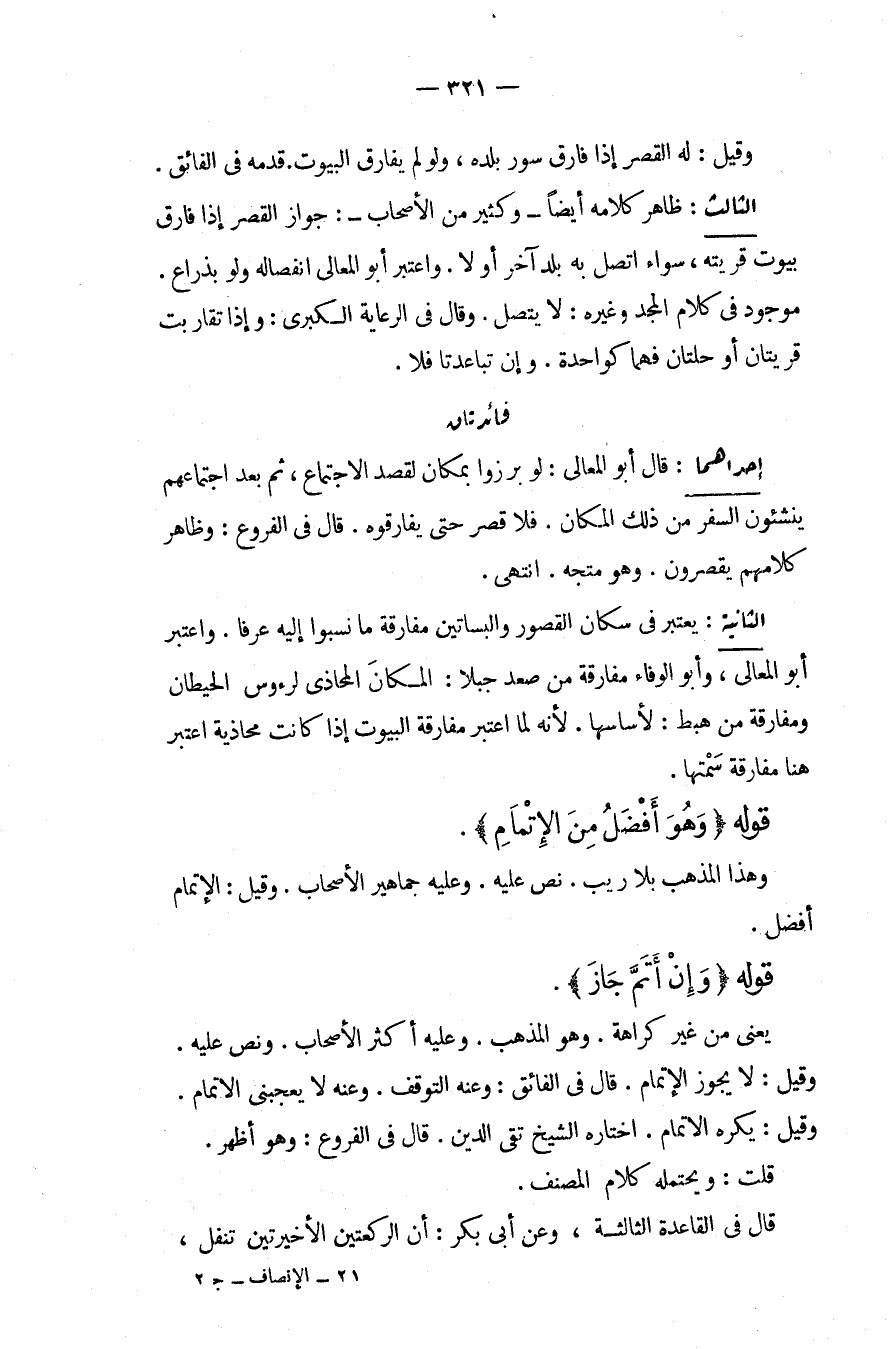 — ٣٢١ —
وقيل : له القصر إذا فارق سور بلده ، ولو لم يفارق البيوت.قدمه فى الفائق .
الثالث : ظاهر كلامه أيضاً ــ وكثير من الأصحاب ــ : جواز القصر إذا فارق
بيوت قريته ، سواء اتصل به بلد آخر أو لا . واعتبر أبو المعالى انفصاله ولو بذراع .
موجود فى كلام المجد وغيره : لا يتصل . وقال فى الرعاية الكبرى : وإذا تقاربت
قريتان أو حلتان فهما كواحدة . وإن تباعدتا فلا .
فائدتان
إحداهما : قال أبو المعالى : لو برزوا بمكان لقصد الاجتماع ، ثم بعد اجتماعهم
ينشئون السفر من ذلك المكان . فلا قصر حتى يفارقوه . قال فى الفروع : وظاهر
كلامهم يقصرون . وهو متجه . انتهى .
الثانية : يعتبر فى سكان القصور والبساتين مفارقة ما نسبوا إليه عرفا . واعتبر
أبو المعالى ، وأبو الوفاء مفارقة من صعد جبلا : المكانَ المحاذى لرءوس الحيطان
ومفارقة من هبط : لأساسها . لأنه لما اعتبر مفارقة البيوت إذا كانت محاذية اعتبر
هنا مفارقة سَمْتها .
قوله ﴿ وَهُوَ أَفْضَلُ مِنَ الإِتْمَامِ ﴾ .
وهذا المذهب بلا ريب . نص عليه . وعليه جماهير الأصحاب . وقيل : الإتمام
أفضل .
قوله ﴿ وَإِنْ أَتَمَّ جَازَ ﴾ .
يعنى من غير كراهة . وهو المذهب . وعليه أكثر الأصحاب . ونص عليه .
وقيل : لا يجوز الإتمام . قال فى الفائق : وعنه التوقف . وعنه لا يعجبنى الاتمام .
وقيل : يكره الاتمام . اختاره الشيخ تقى الدين . قال فى الفروع : وهو أظهر .
قلت : ويحتمله كلام المصنف .
قال فى القاعدة الثالثة ، وعن أبى بكر : أن الركعتين الأخيرتين تنفل ،
٢١ ــ الإنصاف ــ جـ ٢